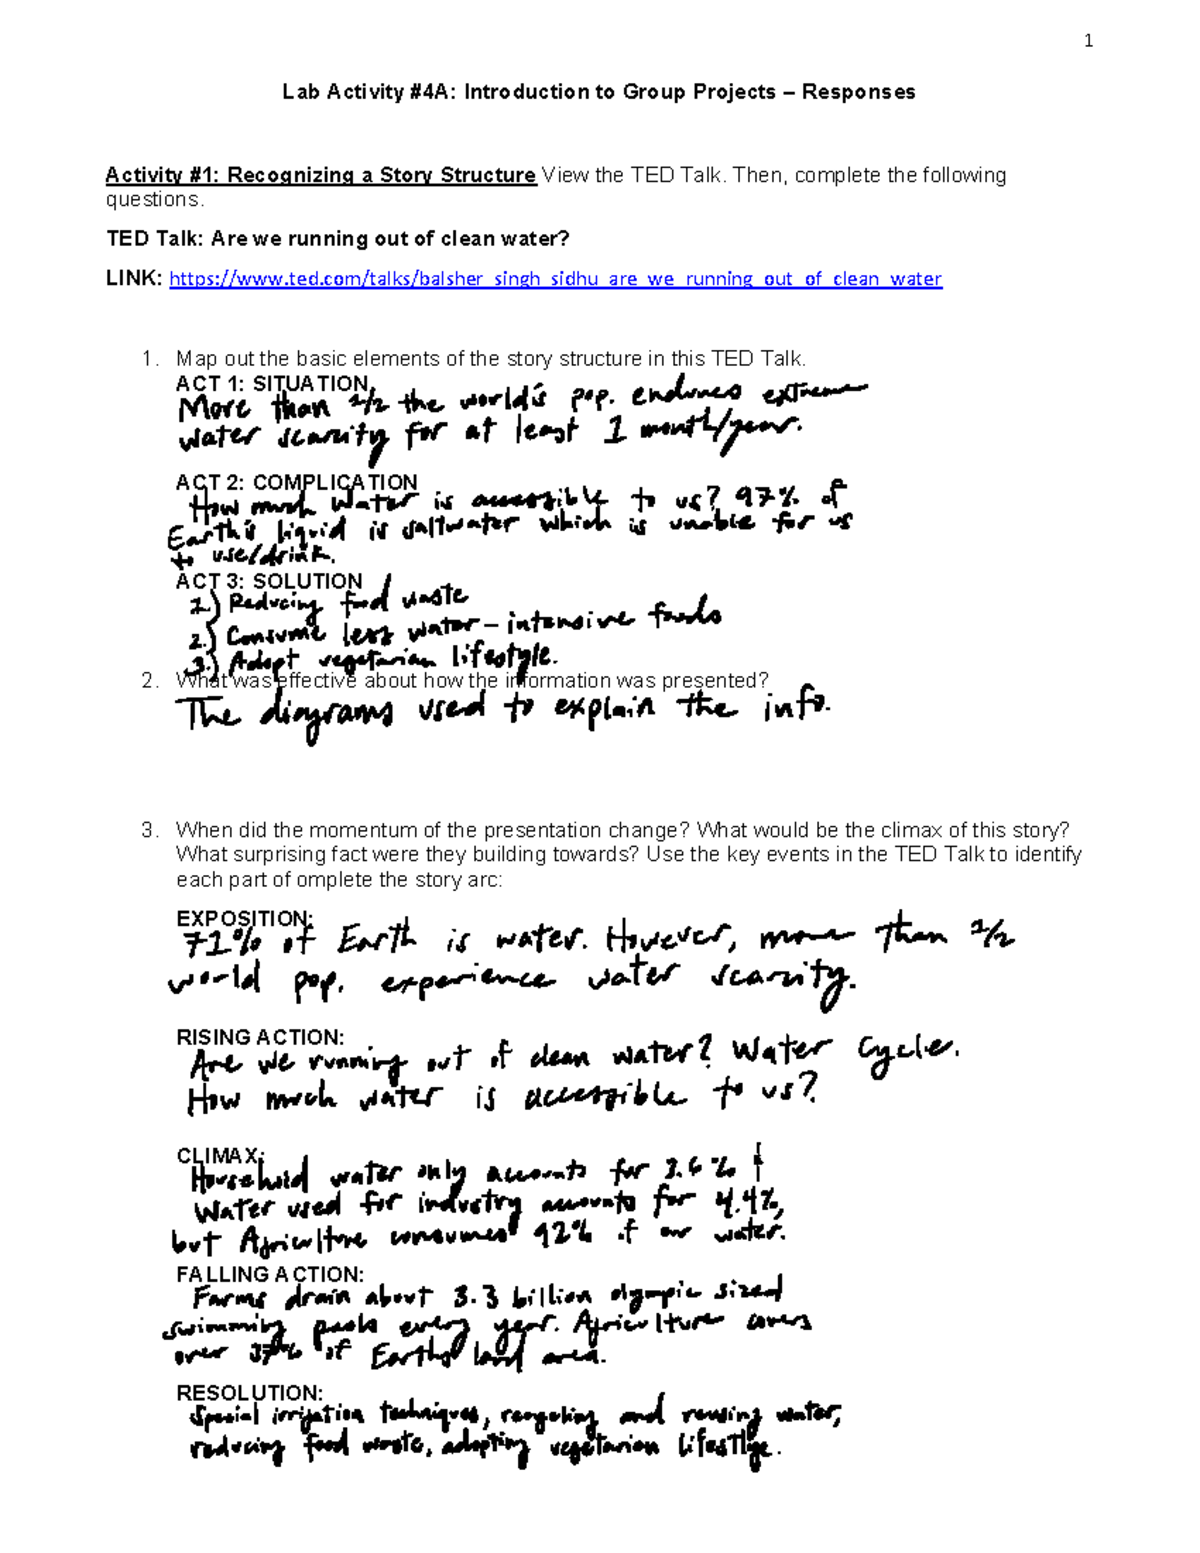 1
Lab Activity #4A: Introduction to Group Projects – Responses
Activity #1: Recognizing a Story Structure View the TED Talk. Then, complete the following
questions.
TED Talk: Are we running out of clean water?
LINK: https://www.ted.com/talks/balsher_singh_sidhu_are_we_running_out_of_clean_water
1. Map out the basic elements of the story structure in this TED Talk.
ACT 1: SITUATION
More than 1/2 the world's pop. endures extreme
water scarcity for at least 1 month/year.
ACT 2: COMPLICATION
How much water is accessible to us? 97% of
Earth's liquid is saltwater which is unable for us
to use/drink.
ACT 3: SOLUTION
1.) Reducing food waste
2.) Consume less water-intensive foods
3.) Adopt vegetarian lifestyle.
2. What was effective about how the information was presented?
The diagrams used to explain the info.
3. When did the momentum of the presentation change? What would be the climax of this story?
What surprising fact were they building towards? Use the key events in the TED Talk to identify
each part of omplete the story arc:
EXPOSITION:
71% of Earth is water. However, more than 1/2
world pop. experience water scarcity.
RISING ACTION:
Are we running out of clean water? Water Cycle.
How much water is accessible to us?
CLIMAX:
Household water only accounts for 3.6% &
Water used for industry accounts for 4.4%,
but Agriculture consumes 92% of our water.
FALLING ACTION:
Farms drain about 3.3 billion olympic sized
swimming pools every year. Agriculture covers
over 37% of Earths land area.
RESOLUTION:
Special irrigation techniques, recycling and reusing water,
reducing food waste, adopting vegetarian lifestlye.